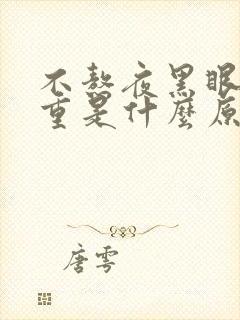 不熬夜黑眼
重是什麼原
唐雩